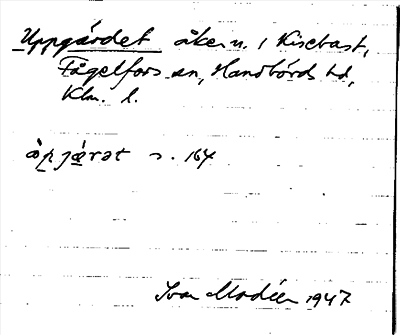 Uppgärdet åkern. i Kisebast,
Fågelfors sn, Handbörds hd,
Klm. l.
s. 164
Ivar Modéer 1947